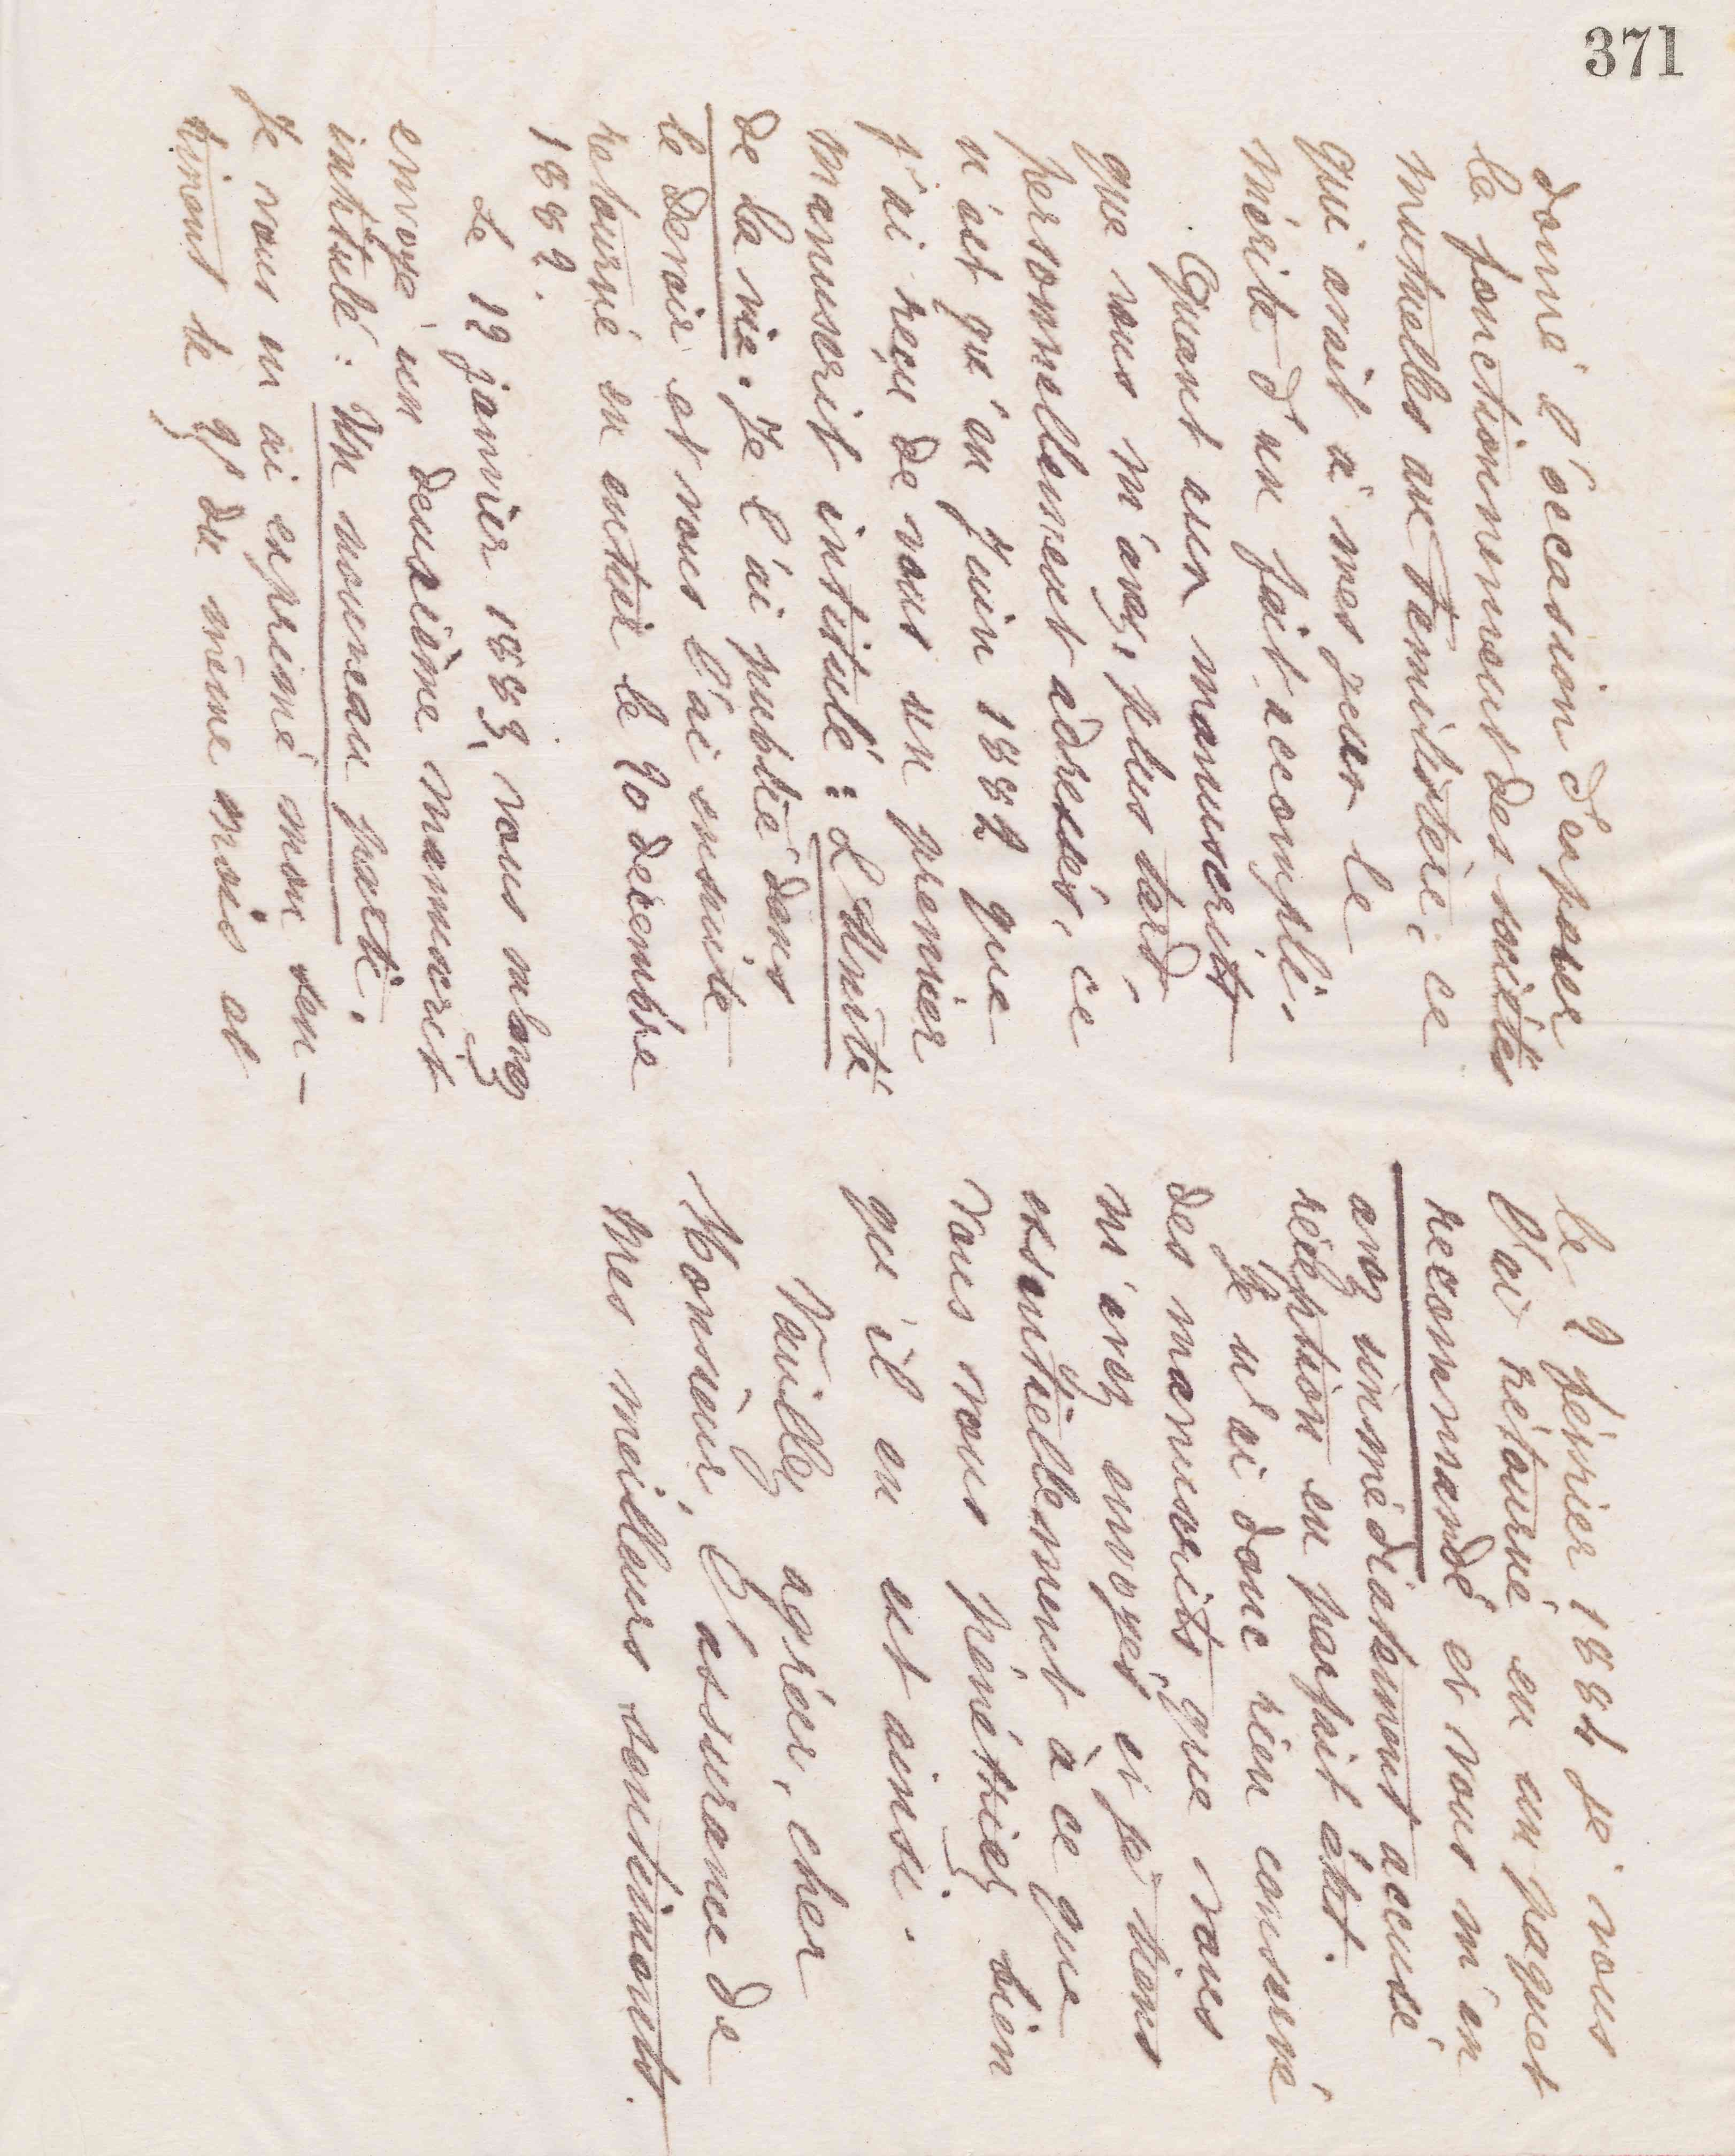 371
donné l'occasion d'exposer
le fonctionnement des sociétés
mutuelles au Familistère; ce
qui avait à mes yeux le
mérite d'un fait accompli.
Quant aux manuscrits
que vous m'avez, plus tard,
personnellement adressés, ce
n'est qu'en Juin 1882 que
j'ai reçu de vous un premier
manuscrit intitulé: L'Unité
de la vie. Je l'ai publié dans
le Devoir et vous l'ai ensuite
retourné en entier le 20 décembre
1882.
Le 12 janvier 1883, vous m'avez
envoyé un deuxième manuscrit
intitulé: Un nouveau parti.
Je vous en ai exprimé mon sen-
timent le 27 du même mois et
le 2 février 1884 je vous
l'ai retourné en un paquet
recommandé et vous m'en
avez immédiatement accusé
réception en parfait état.
Je n'ai donc rien conservé
des manuscrits que vous
m'avez envoyés et je tiens
essentiellement à ce que
vous vous pénétriez bien
qu'il en est ainsi.
Veuillez agréer, cher
Monsieur, l'assurance de
mes meilleurs sentiments.